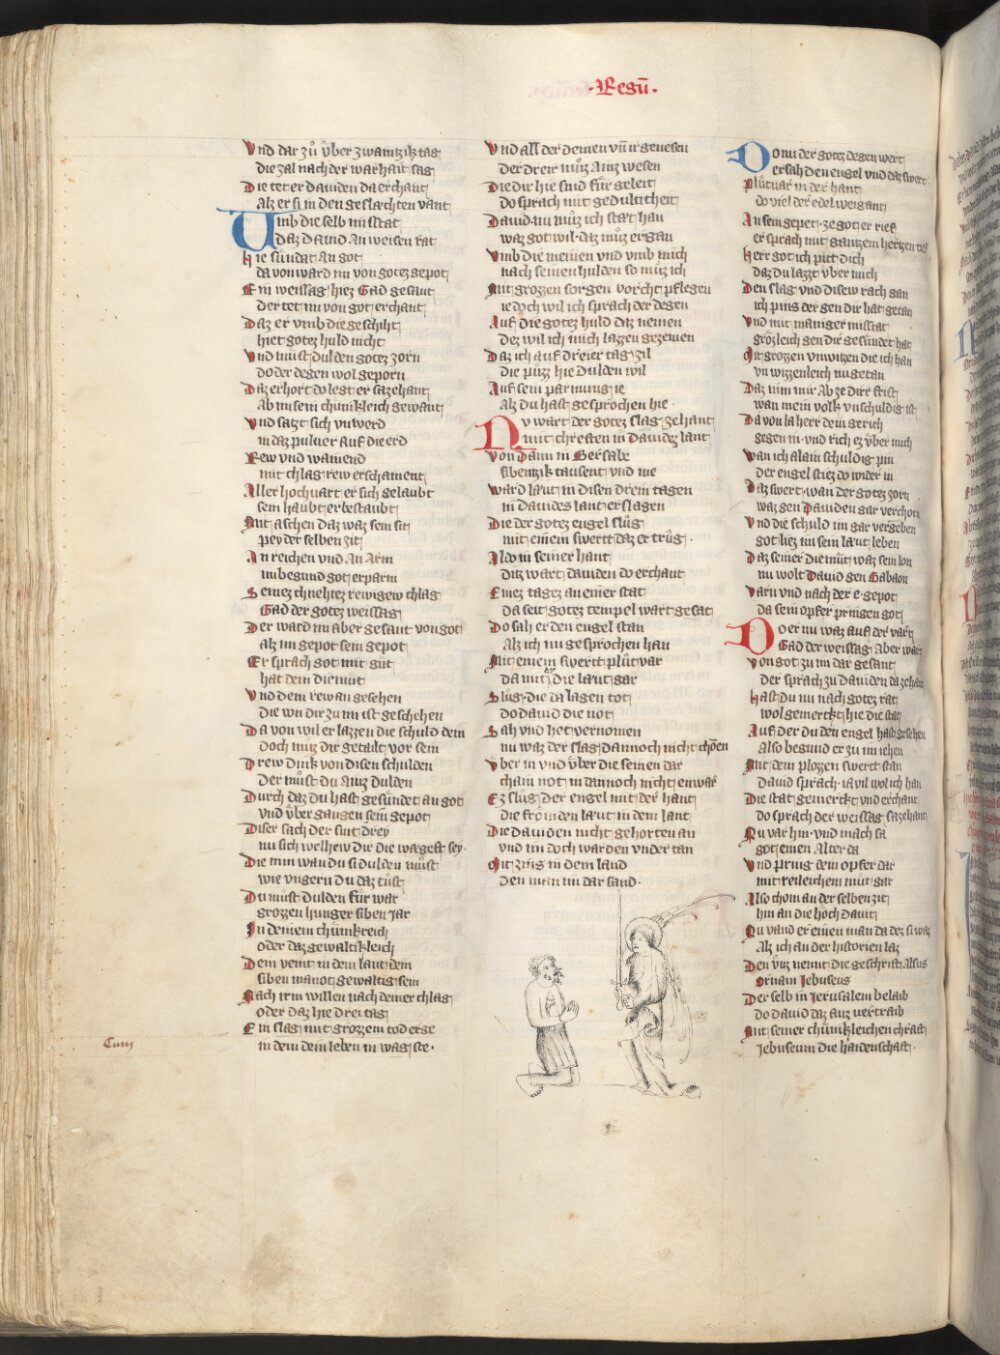 ·Regū·
Vnd dar zů v̈ber zwaintzik tag
die zal nach der warhait sag
Die tet er dauiden da erchant
Alz er si in den geslæchten vant
Vmb die selb missetat
daz dauid An weisen rat
Hie sündat An got
da von ward im von gotez gepot
Ein weissag hiez Gad gesant
der tet im von got erchant
Daz er vmb die geschiht
hiet gotez huld nicht
Vnd müst dulden gotez zorn
do der degen wol geporn
Daz erhort do legt er sa zehant
Ab im sein chünikleich gewant
Vnd satzt sich vnwerd
in daz puluer Auf die erd
Rew vnd wainend
mit chlag rew erschainent
Aller hochuart er sich gelaubt
sein haubt er bestaubt
Mit aschen daz waz sein sit
pey der selben zit
An reichen vnd An Arm
im begund got erparm
Seinez chnehtez rewigew chlag
Gad der gotez weissag
Der ward im aber gesant von got
alz im gepot sein gepot
Er sprach got mit güt
hat dein diemüt
Vnd dein rewan gesehen
die von dir zu im ist geschehen
Da von wil er lazzen die schuld dein
doch müz dir getailt vor sein
Drew dink von disen schulden
Der müst du Ainz dulden
Durch daz du hast gesündet an got
vnd v̈ber gangen sein gepot
Diser sach der sint drey
nu sich welhew dir die wægest sey·
Die nim wan du si dulden müst
wie vngern du daz tüst
Du müst dulden für war
grozzen hunger siben Jar
In deinem chünkreich
oder daz gewaltikleich
Dein veint in dem lant dein
siben manot gewaltig sein
Nach irm willen nach deiner chlag
oder daz hie drei tag
Ein slag mit grozzem tod erge
in dem dein leben in wag ste·
Vnd all der deinen vñ ir genesen
der dreir müz ainz wesen
Die dir hie sind für geleit
do sprach mit gedulticheit
Dauid nu müz ich stæt han
waz got wil daz müz ergan
Vmb die meinen vnd vmb mich
nach seinen hulden so müz ich
Mit grozzen sorgen vorcht pflegen
ie doch wil ich sprach der degen
Auf die gotez huld daz nemen
dez wil ich mich lazzen gezemen
Daz ich auf dreier tag zil
die püzz hie dulden wil
Auf sein parmung ie
Alz du hast gesprochen hie·
Nv wart der gotez slag zehant
mit chreften in dauidez lant
Von dann in Bersabe
sibentzik tausent vnd me
Ward läut in disen drein tagen
in dauides lant erslagen
Die der gotez engel slüg
mit einem swertt daz er trüg·
Aldo in seiner hant
ditz wart dauiden do erchant
Einez tagez an einer stat
da seit gotez tempel wart gesat
Do sah er den engel stan
Alz ich im gesprochen han
Mit einem swertt plüt var
da mit die läut gar
Slüg die da lagen tot
do dauid die not
Sah vnd het vernomen
nu waz der slag dannoch nicht chömen
V̈ber in vnd v̈ber die seinen dar
chain not in dannoch nicht enwar
Ez slüg der engel mit der hant
die frömden läut in dem lant
Die dauiden nicht gehorten an
vnd im doch warden vnder tan
Mit zins in dem land
den man im dar sand·
Do nu der gotez degen wert
ersah den engel vnd daz swert
Plütuar in der hant
do viel der edel weigant
An sein gepet ze got er rief
er sprach mit gantzem hertzen tief
Herr got ich pitt dich
daz du lazzt v̈ber mich
Den slag vnd disew rach gan
ich pins der gen dir hat getan
Vnd mit maniger missetat
grözleich gen dir gesündet hat
Mit grozzen vnwitzen die ich han
vn wizzenleich nu getan
Daz nim mir Ab ze dirr frist
wan mein volk vnschuldig ist
Da von la herr dein gerich
gegen in vnd rich ez v̈ber mich
Wan ich alain schuldig pin
der engel stiez do wider in
Daz swert wan der gotez zorn
waz gen Dauiden gar verchorn
Vnd die schuld im gar vergeben
got liez im sein läut leben
Daz seiner diemüt waz sein lon
nu wolt Dauid gen Gabaon
Varn vnd nach der e gepot
da sein opfer pringen got
Do er nu waz auf der vart
Gad der weissag Aber wart
Von got zu im dar gesant
der sprach zu dauiden da zehant
Hast du nu nach gotez rat
wol gemerckt hie die stat
Auf der du den engel hast gesehen
Also begund er zu im iehen
Mit dem plozzen swertt stan
dauid sprach· ia vil wol ich han
Die stat gemerckt vnd erchant
do sprach der weissag sa zehant
Nu var hin vnd mach sa
got einen Alter da
Vnd pring dein opfer dar
mit reileichem müt gar
Also chom an der selben zit
hin an die höch dauit
Nu vand er einen man da dez si waz
Alz ich an der historien laz
Den v̈nz nennt die geschrift Alsus
Ornain Jebuseus
Der selb in Jerusalem belaib
do dauid daz auz vertraib
Mit seiner chünikleichen chraft
Jebuseum die haidenschaft·